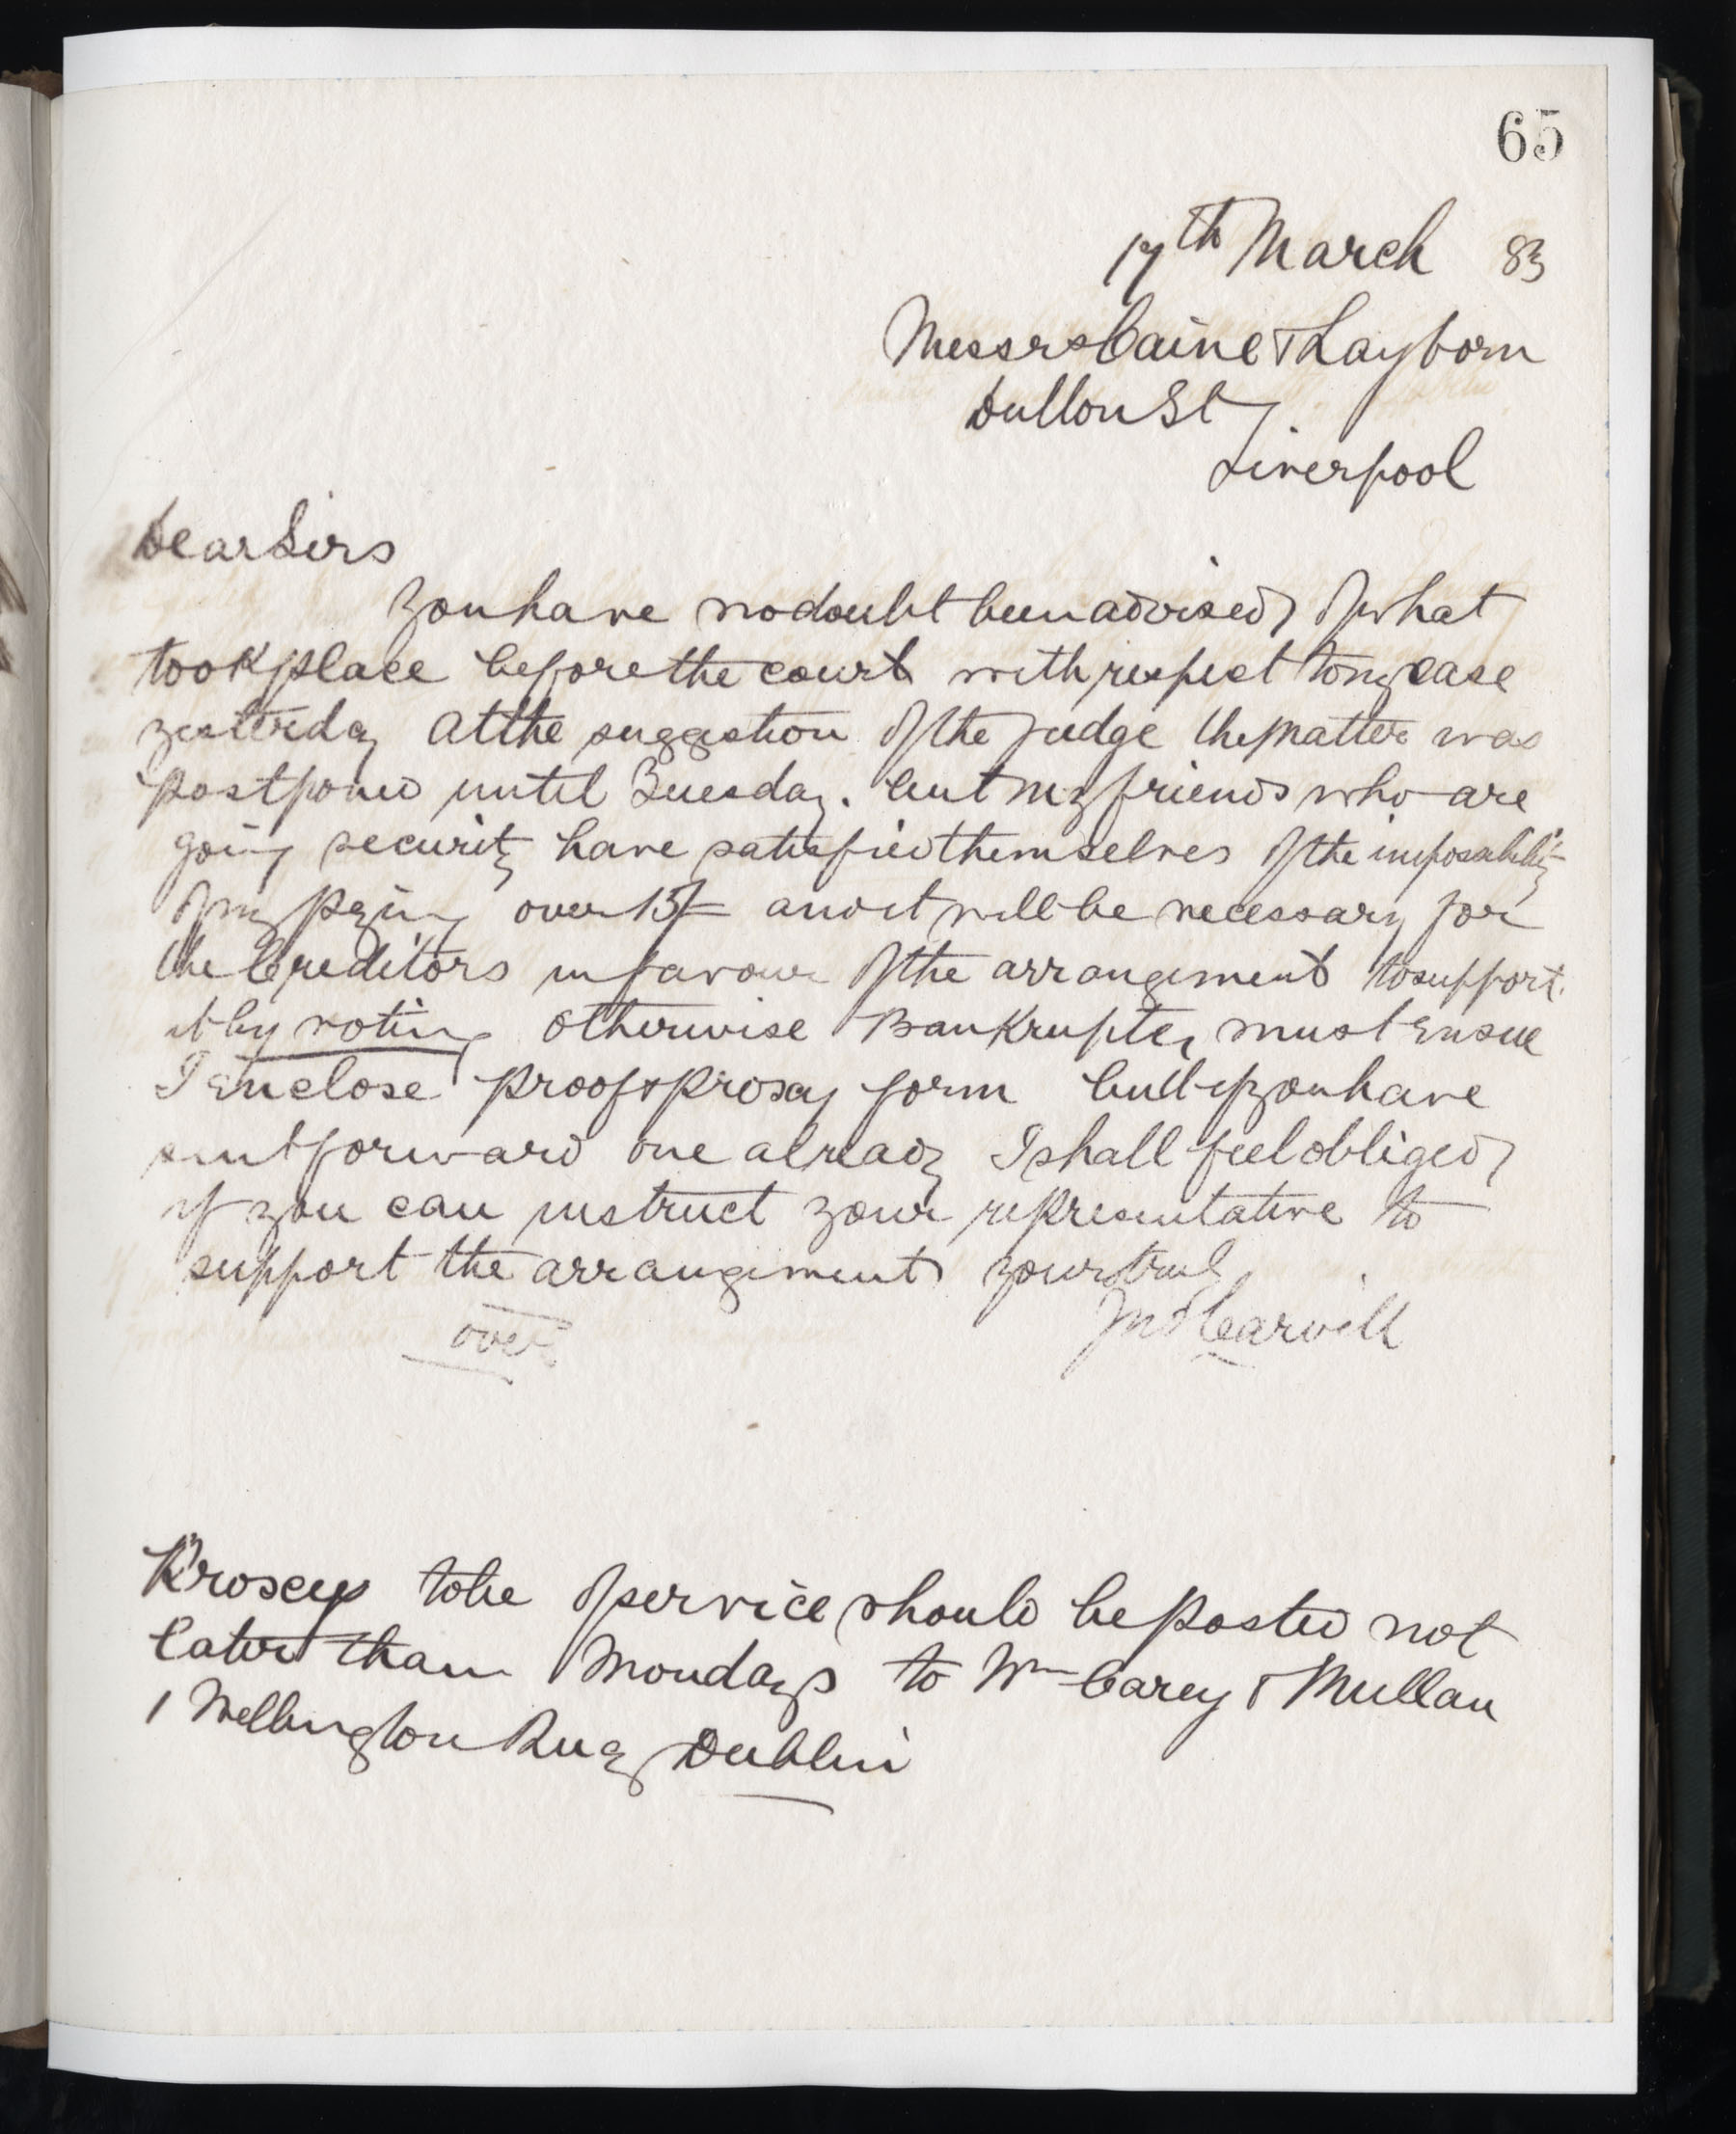 65
17th March 83
Messrs Caine & Layborn
Dutton St
Liverpool
Dear Sirs
You have no doubt been advised of what
took place before the court with respect to my case
yesterday At the suggestion of the judge the matter was
postponed until Tuesday. but my friends who are
going security have satisfied themselves of the imposability
of my paying over 15/= and it will be necessary for
the Creditors in favour of the arrangement to support
it by voting otherwise Bankruptcy must Ensue
I Enclose proof & proxy form but if you have
sent forward one already I shall feel obliged
if you can instruct your representative to
support the arrangement yours truly
over Jno Carvill
Proxeys to be of service should be posted not
later than Mondays to Wm Carey & Mullan
1 Wellington Quay Dublin